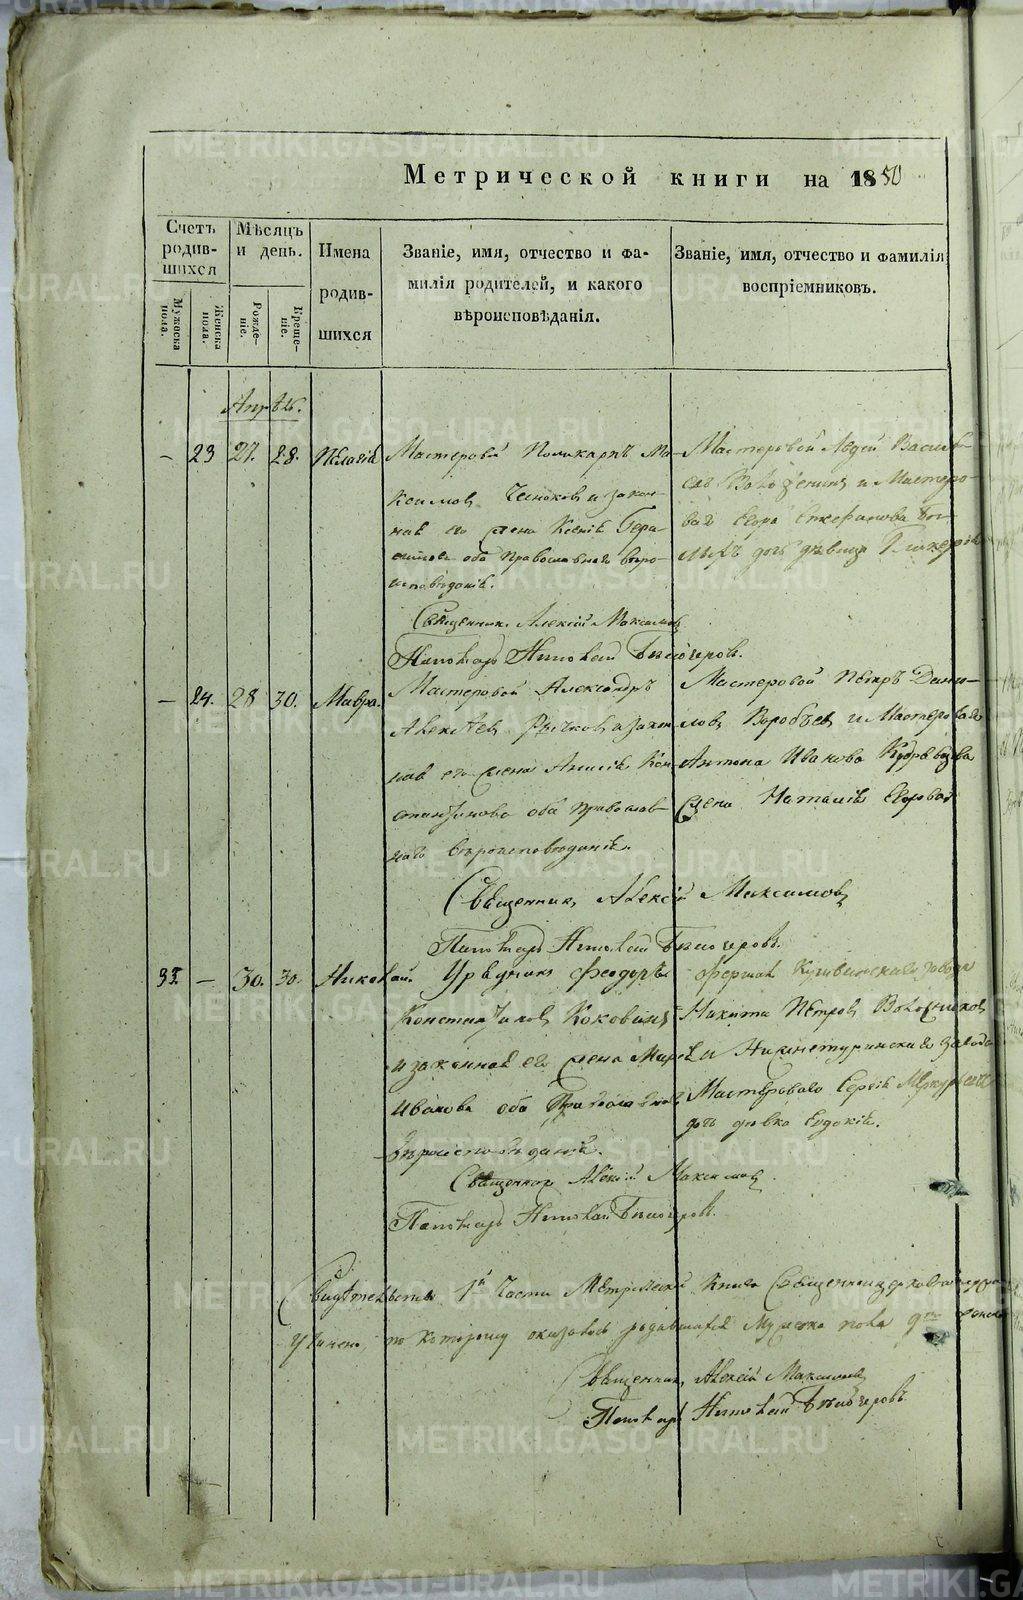 Метрической книги на 1850
Счетъ родившихся
Мѣсяцъ и день.
Имена родившихся
Званіе, имя, отчество и фамилія родителей, и какого вѣроисповѣданія.
Званіе, имя, отчество и фамилія воспріемниковъ.
Мужеска пола.
Женска пола.
Рожденіе.
Крещеніе.
Апрѣль.
— 23 27. 28. Пелагія
Мастеровой Поликарпъ Ма-
ксимовъ и закон-
ная его жена Ксенія Гера-
симова оба Православнаго вѣро-
исповѣданія.
Мастеровой Авдей Василь-
евъ и Мастеро-
ваго Егора Стефанова
дочь дѣвица Гликерія
Священникъ Алексій Максимовъ
Пономарь Николай Бѣлозеровъ.
— 24. 28 30. Мавра.
Мастеровой Александръ
Алексѣевъ Рычковъ и закон-
ная его жена Анисія Кон-
стантинова оба Православ-
наго Вѣроисповѣданія.
Мастеровой Петръ Дани-
ловъ Воробьевъ и Мастероваго
Антона Иванова
жена Наталія Егорова
Священникъ Алексій Максимовъ
Пономарь Николай Бѣлозеровъ.
33. — 30. 30. Николай.
Урядникъ Феодоръ
Константиновъ Коковинъ
и законная его жена Марія
Иванова оба Православнаго
Вѣроисповѣданія.
Кушвинскаго завода
Никита Петровъ
и Нижнетуринскаго завода
Мастероваго Сергія
дочь дѣвка Евдокія.
Священникъ Алексій Максимовъ.
Пономарь Николай Бѣлозеровъ.
1й Части Метрической Книги Священноцерковнослужит
учинено, по которому оказалось родившихся Мужеска пола женска
Священникъ Алексій Максимовъ
Пономарь Николай Бѣлозеровъ
METRIKI.GASO-URAL.RU